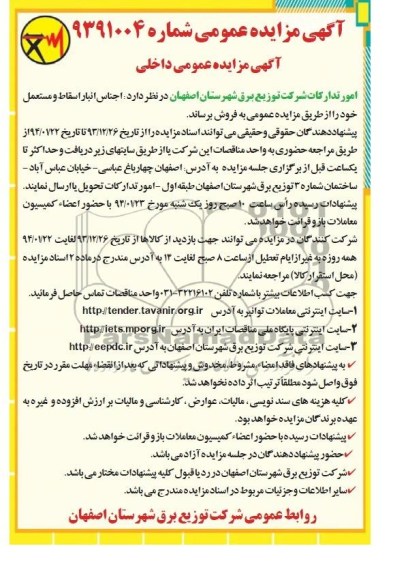 آگهی مزایده عمومی شماره ۹۳۹۱۰۰۴
آگهی مزایده عمومی داخلی
امور تدارکات شرکت توزیع برق شهرستان اصفهان در نظر دارد : اجناس انبار اسقاط و مستعمل
خود را از طریق مزایده عمومی به فروش برساند.
پیشنهاددهندگان حقوقی وحقیقی می توانند اسناد مزایده را از تاریخ ۹۳/۱۲/۲۶ تا تاریخ ۹۴/۰۱/۲۲از
طریق مراجعه حضوری به واحد مناقصات این شرکت یا از طریق سایتهای زیر دریافت و حداکثر تا
یکساعت قبل از برگزاری جلسه مزایده به آدرس: اصفهان چهارباغ عباسی- خیابان عباس آباد -
ساختمان شماره ۳ توزیع برق شهرستان اصفهان طبقه اول - امور تدارکات تحویل یا ارسال نمایند.
پیشنهادات رسیده رأس ساعت ۱۰ صبح روز یک شنبه مورخ ۹۴/۰۱/۲۳ با حضور اعضاء کمیسیون
معاملات باز و قرائت خواهد شد.
شرکت کنندگان در مزایده می توانند جهت بازدید از کالاها از تاریخ ۹۳/۱۲/۲۶ لغایت ۹۴/۰۱/۲۲
همه روزه به غیر از ایام تعطیل از ساعت ۸ صبح لغایت ۱۴ به آدرس مندرج در ماده ۲ اسناد مزایده
(محل استقرار کالا) مراجعه نمایند.
جهت کسب اطلاعات بیشتر با شماره تلفن ۳۲۲۱۶۱۰۲-۰۳۱ واحد مناقصات تماس حاصل فرمائید.
۱-سایت اینترنتی معاملات توانیر به آدرس http://tender.tavanir.org.ir
۲-سایت اینترنتی پایگاه ملی مناقصات ایران به آدرس http://iets.mporg.ir
۳-سایت اینترنتی شرکت توزیع برق شهرستان اصفهان به آدرس http://eepdc.ir
به پیشنهادهای فاقد امضاء، مشروط، مخدوش و پیشنهاداتی که بعد از انقضاء مهلت مقرر در تاریخ
فوق واصل شود مطلقاً ترتیب اثر داده نخواهد شد.
کلیه هزینه های سند نویسی ، مالیات، عوارض ، کارشناسی و مالیات بر ارزش افزوده و غیره به
عهده برندگان مزایده خواهد بود.
پیشنهادات رسیده با حضور اعضاء کمیسیون معاملات باز و قرائت خواهد شد.
حضور پیشنهاد دهندگان در جلسه مزایده آزاد می باشد.
شرکت توزیع برق شهرستان اصفهان در رد یا قبول کلیه پیشنهادات مختار می باشد.
سایر اطلاعات و جزئیات مربوط در اسناد مزایده مندرج می باشد.
روابط عمومی شرکت توزیع برق شهرستان اصفهان